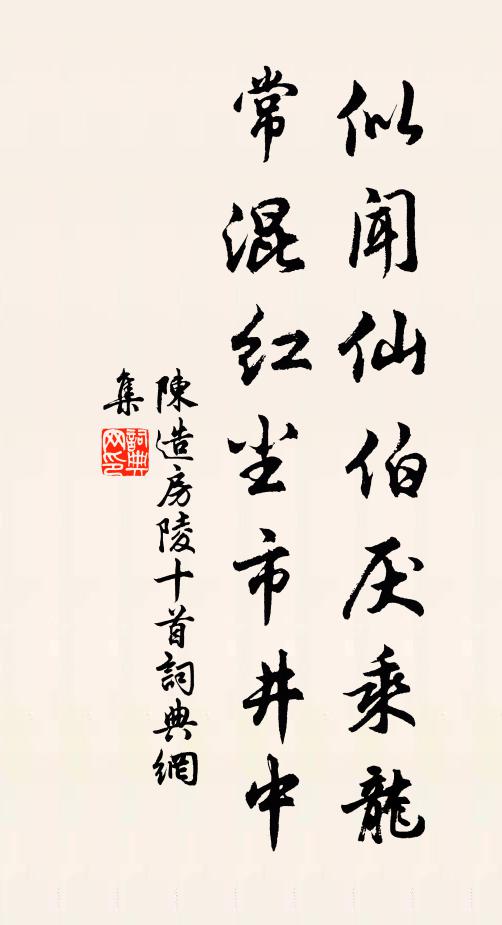 似闻仙伯厌乘龍
常混红尘市井中
陳造房陵十首詞典網
集
詞典网印